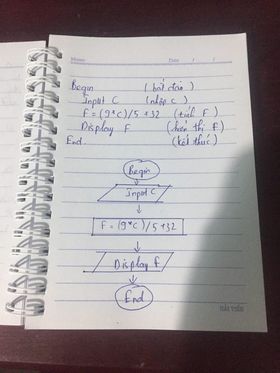 Name: Date: / /
Begin (bắt đầu)
Input C (nhập C)
F = (9*C)/5+32 (tính F)
Display F (hiển thị F)
End. (kết thúc)
Begin
Input C
F = (9*C)/5+32
Display F
End
HẢI TIẾN